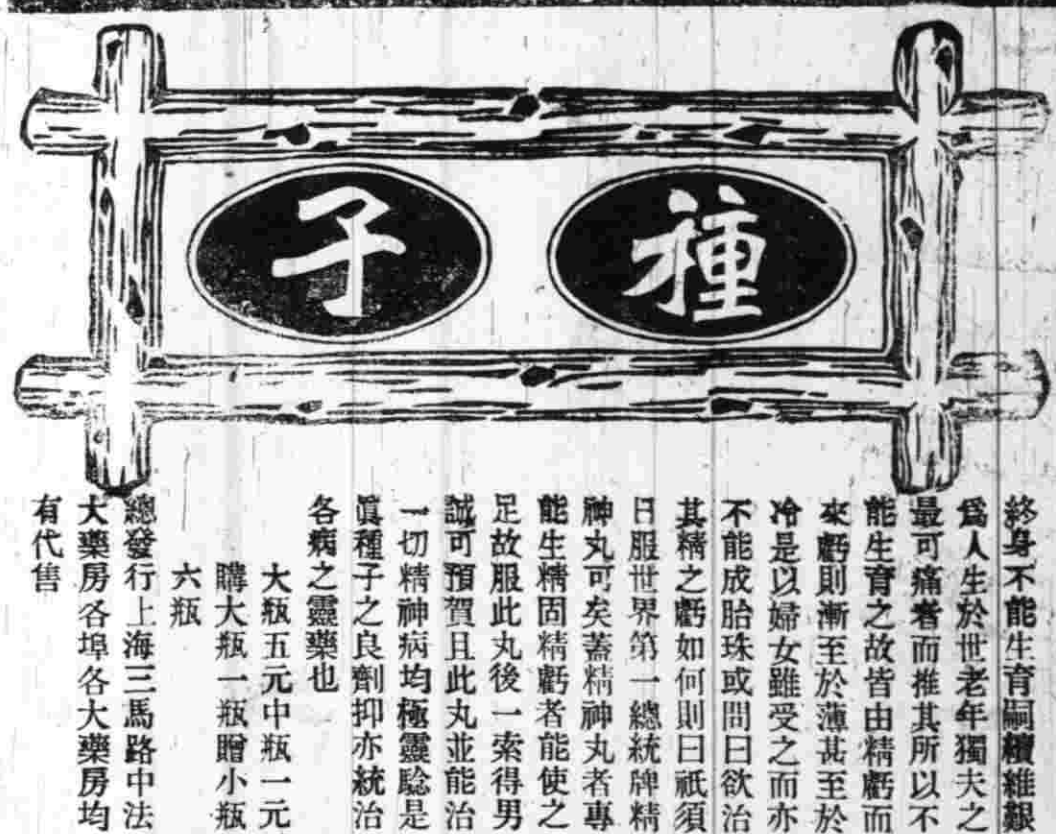 種子
終身不能生育嗣續維艱
爲人生於世老年獨夫之
最可痛者而推其所以不
能生育之故皆由精虧而
來虧則漸至於薄甚至於
冷是以婦女雖受之而亦
不能成胎珠或問曰欲治
其精之虧如何則曰祇須
日服世界第一總統牌精
神丸可矣蓋精神丸者專
能生精固精虧者能使之
足故服此丸後一索得男
誠可預賀且此丸並能治
一切精神病均極靈騐是
眞種子之良劑抑亦統治
各病之靈藥也
大瓶五元中瓶一元
購大瓶一瓶贈小瓶
六瓶
總發行上海三馬路中法
大藥房各埠各大藥房均
有代售